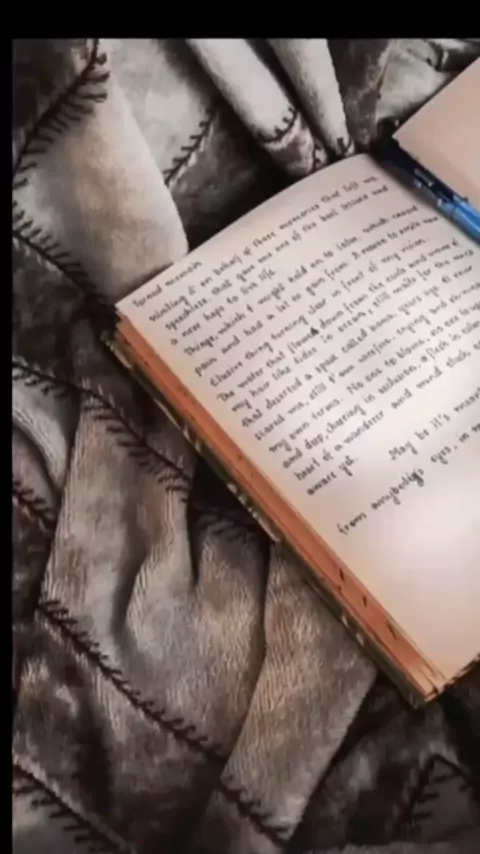 formed memoir
Writing it on behalf of those memories that left me
speechless, that gave me one of the best lessons and
a new hope to live life.
Things, which I might hold on to later, which caused
pain and had a lot to gain from. A reason to
Elusive thing turning clear in front of my vision.
The water that flowed down from the curls and waves of
my hair like tides in ocean, still waits for the wind
that deserted a space called home, years ago. It never
scared me, still I'm carefree, crying and
my own terms. No one to blame, no one to
and deep, cheering in seclusion, a flesh in
heart of a wanderer and mind stuck
aware yet.
May be it's
from anybody's eyes, in